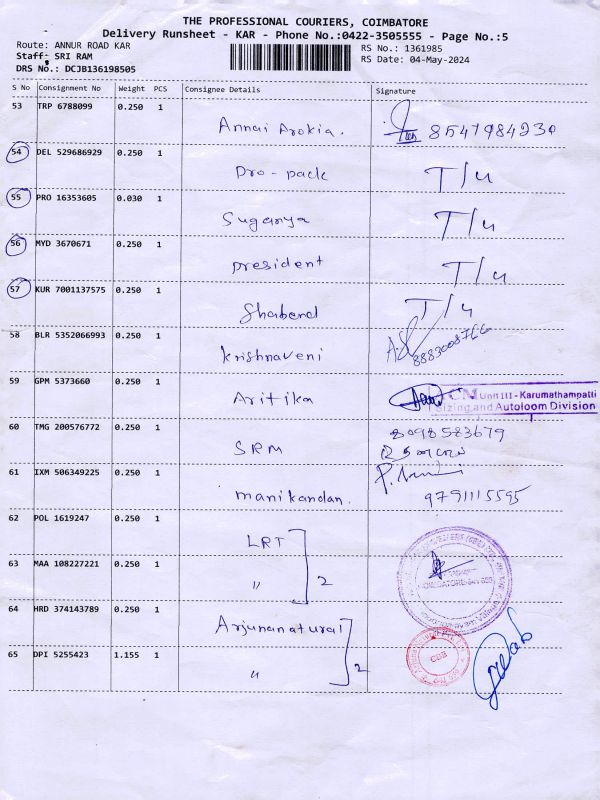 THE PROFESSIONAL COURIERS, COIMBATORE
Delivery Runsheet - KAR - Phone No.:0422-3505555 - Page No.:5
Route: ANNUR ROAD KAR
RS No.: 1361985
Staff: SRI RAM
RS Date: 04-May-2024
DRS No.: DCJB136198505
S No Consignment No Weight PCS Consignee Details Signature
53 TRP 6788099 0.250 1
Annai Arokia. 8547984230
54 DEL 529686929 0.250 1
Pro-pack T/u
55 PRO 16353605 0.030 1
Suganya T/u
56 MYD 3670671 0.250 1
president T/u
57 KUR 7001137575 0.250 1
Shabend T/u
58 BLR 5352066993 0.250 1
Krishnaveni
59 GPM 5373660 0.250 1
Aritika
CM Unit III - Karumathampatti
Sizing and Autoloom Division
60 TMG 200576772 0.250 1
SRM 8098583679
61 IXM 506349225 0.250 1
manikandan. 9791115595
62 POL 1619247 0.250 1
LRT
63 MAA 108227221 0.250 1
" 2
64 HRD 374143789 0.250 1
Arjunanatural
65 DPI 5255423 1.155 1
" 2